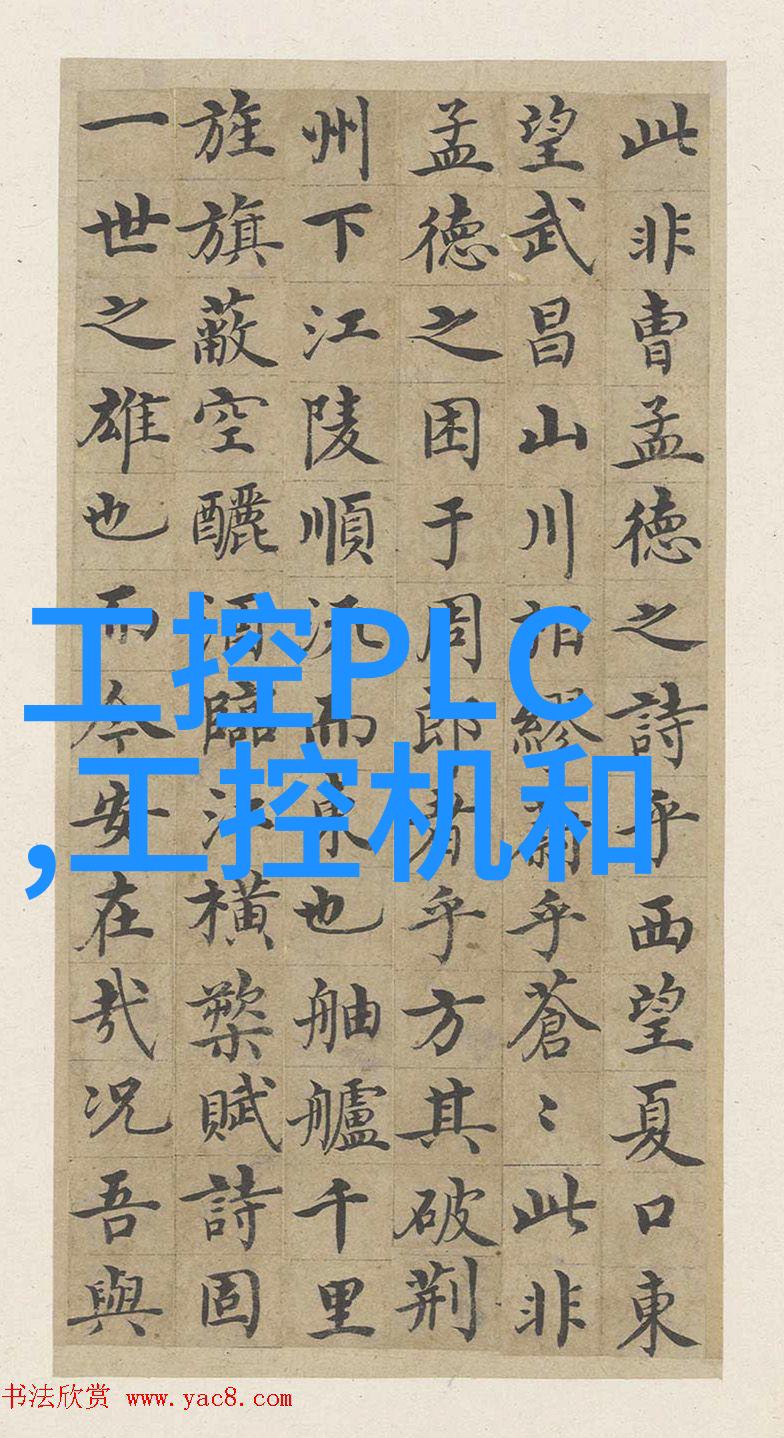 此非曹孟德之詩乎西望夏口東
望武昌山川相繆乎蒼〻此非
孟德之困于周郎者乎方其破荆
州下江陵順流而東也舳艫千里
旌旗蔽空釃酒臨江橫槊賦詩固
一世之雄也而今安在哉况吾與
工控PLC
,工控机和
书法欣赏 www.yac8.com